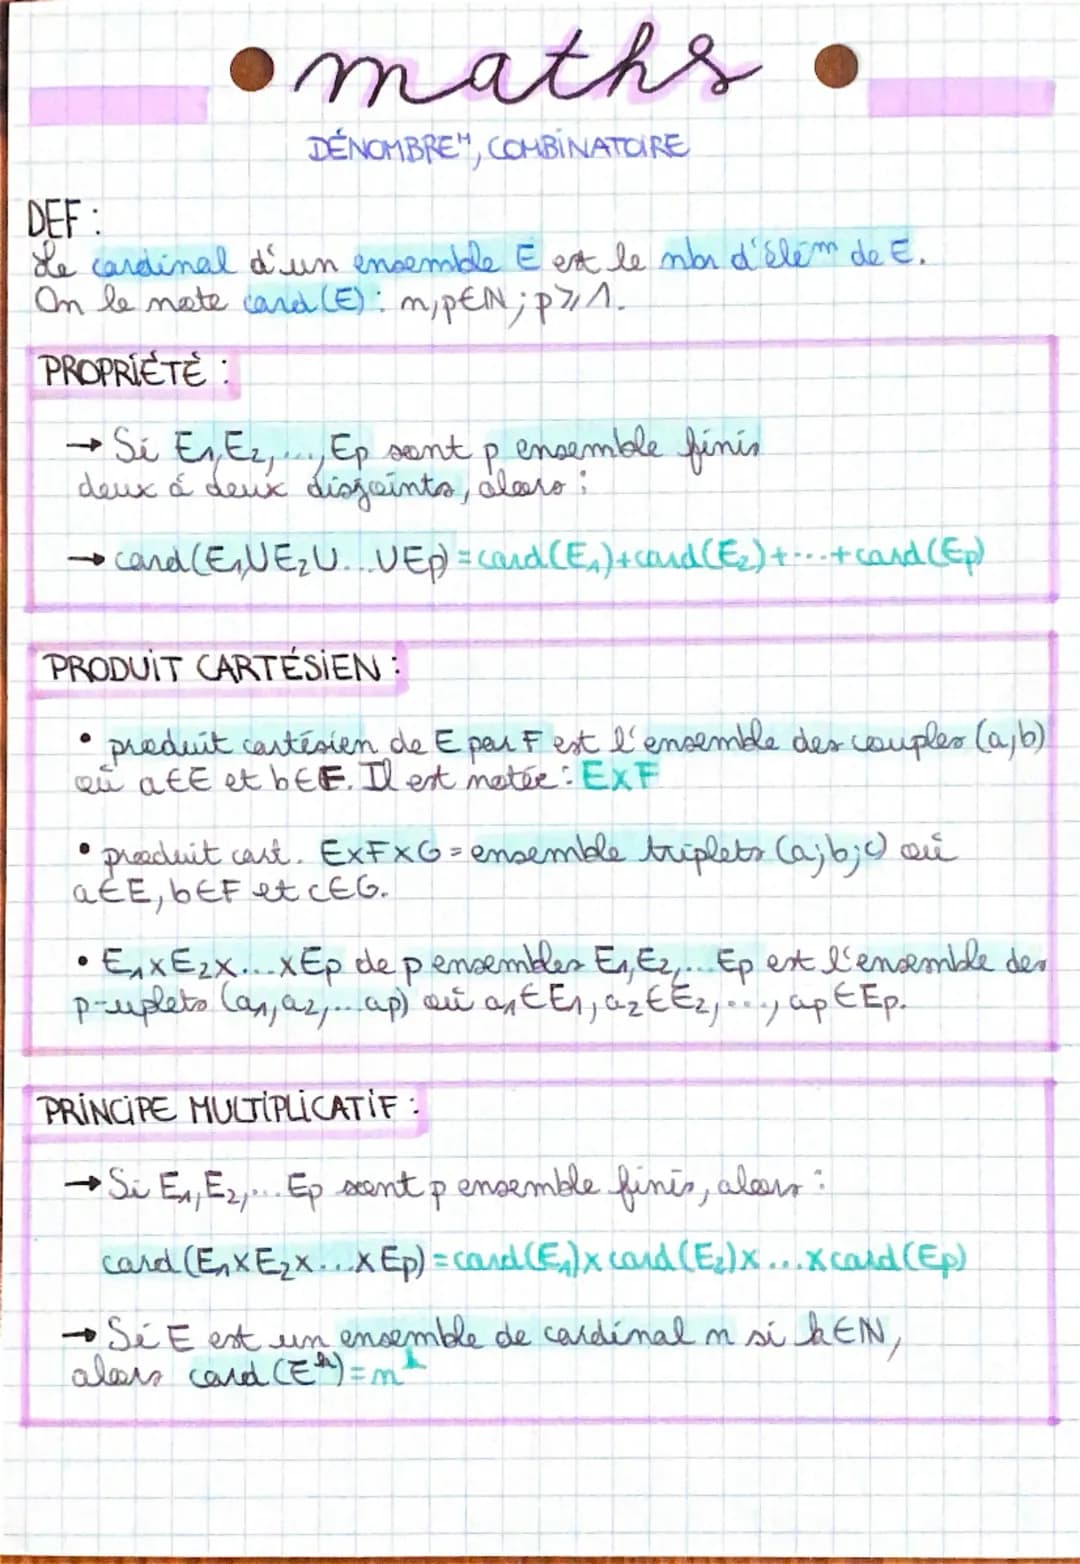 maths
DÉNOMBREᴹ, COMBINATOIRE
DEF :
Le cardinal d'un ensemble E est le nbr d'élém de E.
On le note card(E) : n,p∈ℕ ; p⩾1.
PROPRIÉTÉ :
→ Si E₁,E₂,...,Ep sont p ensemble finis
deux à deux disjoints, alors :
→ card(E₁UE₂U...UEp) = card(E₁)+card(E₂)+...+card(Ep)
PRODUIT CARTÉSIEN :
• produit cartésien de E par F est l'ensemble des couples (a;b)
où a∈E et b∈F. Il est notée : ExF
• produit cart. ExFxG = ensemble triplets (a;b;c) où
a∈E, b∈F et c∈G.
• E₁xE₂x...xEp de p ensembles E₁,E₂,... Ep est l'ensemble des
p-uplets (a₁,a₂,...ap) où a₁∈E₁, a₂∈E₂,..., ap∈Ep.
PRINCIPE MULTIPLICATIF :
→ Si E₁,E₂,... Ep sont p ensemble finis, alors :
card(E₁xE₂x...xEp) = card(E₁)x card(E₂)x...x card(Ep)
→ Si E est un ensemble de cardinal n si k∈ℕ,
alors card(Eᵏ)=nᵏ